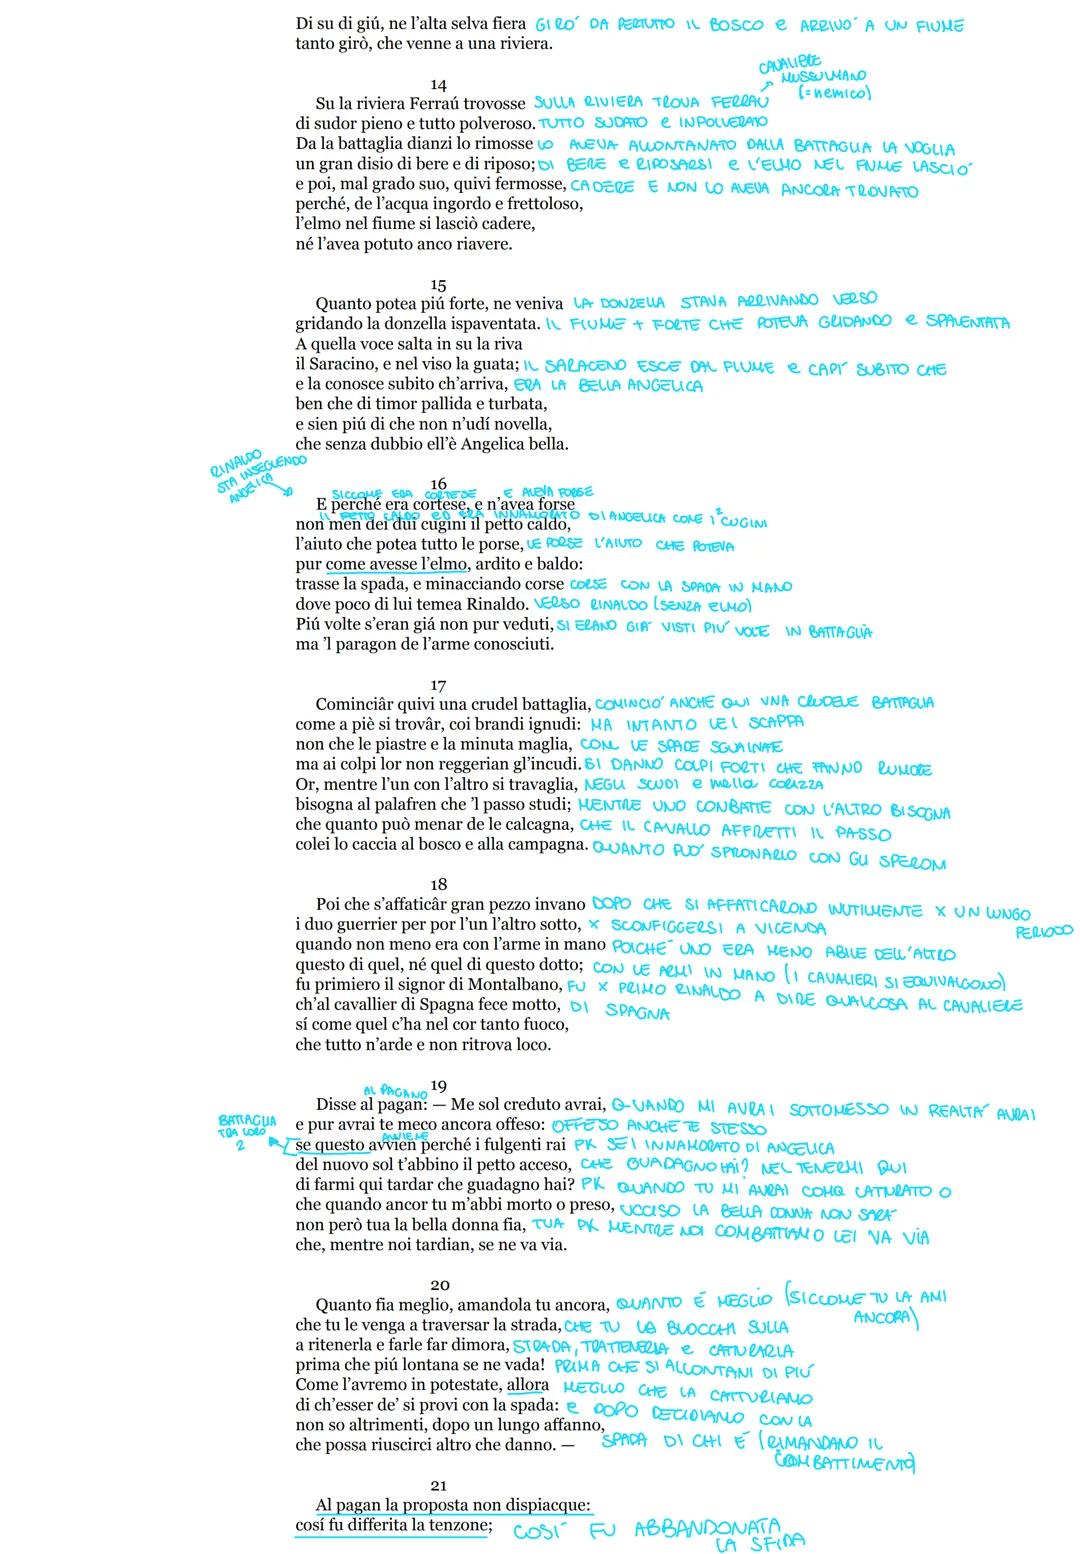 Di su di giú, ne l'alta selva fiera GIRO' DA PERTUTTO IL BOSCO e ARRIVO' A UN FIUME
tanto girò, che venne a una riviera.
CAVALIERE
MUSSULMANO
(=nemico)
14
Su la riviera Ferraú trovosse SULLA RIVIERA TROVA FERRAU
di sudor pieno e tutto polveroso. TUTTO SUDATO e INPOLVERATO
Da la battaglia dianzi lo rimosse LO AVEVA ALLONTANATO DALLA BATTAGLIA LA VOGLIA
un gran disio di bere e di riposo; DI BERE e RIPOSARSI e L'ELMO NEL FIUME LASCIO'
e poi, mal grado suo, quivi fermosse, CADERE E NON LO AVEVA ANCORA TROVATO
perché, de l'acqua ingordo e frettoloso,
l'elmo nel fiume si lasciò cadere,
né l'avea potuto anco riavere.
15
Quanto potea piú forte, ne veniva LA DONZELLA STAVA ARRIVANDO VERSO
gridando la donzella ispaventata. IL FIUME + FORTE CHE POTEVA GRIDANDO e SPAVENTATA
A quella voce salta in su la riva
il Saracino, e nel viso la guata; IL SARACENO ESCE DAL FIUME e CAPI' SUBITO CHE
e la conosce subito ch'arriva, ERA LA BELLA ANGELICA
ben che di timor pallida e turbata,
e sien piú di che non n'udí novella,
che senza dubbio ell'è Angelica bella.
RINALDO
STA INSEGUENDO
ANGELICA
16
SICCOME ERA CORTESE E AVEVA FORSE
E perché era cortese, e n'avea forse
IL PETTO CALDO ED ERA INNAMORATO DI ANGELICA COME I 2 CUGINI
non men dei dui cugini il petto caldo,
l'aiuto che potea tutto le porse, LE PORSE L'AIUTO CHE POTEVA
pur come avesse l'elmo, ardito e baldo:
trasse la spada, e minacciando corse CORSE CON LA SPADA IN MANO
dove poco di lui temea Rinaldo. VERSO RINALDO (SENZA ELMO)
Piú volte s'eran giá non pur veduti, SI ERANO GIA' VISTI PIU' VOLTE IN BATTAGLIA
ma 'l paragon de l'arme conosciuti.
17
Cominciâr quivi una crudel battaglia, COMINCIO' ANCHE QUI UNA CRUDELE BATTAGLIA
come a piè si trovâr, coi brandi ignudi: MA INTANTO LEI SCAPPA
non che le piastre e la minuta maglia, CON LE SPADE SGUAINATE
ma ai colpi lor non reggerian gl'incudi. SI DANNO COLPI FORTI CHE FANNO RUMORE
Or, mentre l'un con l'altro si travaglia, NEGLI SCUDI e nella CORAZZA
bisogna al palafren che 'l passo studi; MENTRE UNO CONBATTE CON L'ALTRO BISOGNA
che quanto può menar de le calcagna, CHE IL CAVALLO AFFRETTI IL PASSO
colei lo caccia al bosco e alla campagna. QUANTO PUO' SPRONARLO CON GLI SPERONI
18
Poi che s'affaticâr gran pezzo invano DOPO CHE SI AFFATICARONO INUTILMENTE X UN LUNGO
i duo guerrier per por l'un l'altro sotto, X SCONFIGGERSI A VICENDA PERIODO
quando non meno era con l'arme in mano POICHE' UNO ERA MENO ABILE DELL'ALTRO
questo di quel, né quel di questo dotto; CON LE ARMI IN MANO (I CAVALIERI SI EQUIVALGONO)
fu primiero il signor di Montalbano, FU X PRIMO RINALDO A DIRE QUALCOSA AL CAVALIERE
ch'al cavallier di Spagna fece motto, DI SPAGNA
sí come quel c'ha nel cor tanto fuoco,
che tutto n'arde e non ritrova loco.
19
AL PAGANO
Disse al pagan: — Me sol creduto avrai, QUANDO MI AVRAI SOTTOMESSO IN REALTA' AVRAI
e pur avrai te meco ancora offeso: OFFESO ANCHE TE STESSO
BATTAGLIA
TRA LORO
2
AVVIENE
se questo avvien perché i fulgenti rai PK SEI INNAMORATO DI ANGELICA
del nuovo sol t'abbino il petto acceso, CHE GUADAGNO HAI? NEL TENERMI QUI
di farmi qui tardar che guadagno hai? PK QUANDO TU MI AVRAI COMQ CATTURATO O
che quando ancor tu m'abbi morto o preso, UCCISO LA BELLA DONNA NON SARA'
non però tua la bella donna fia, TUA PK MENTRE NOI COMBATTIAMO LEI VA VIA
che, mentre noi tardian, se ne va via.
20
Quanto fia meglio, amandola tu ancora, QUANTO É MEGLIO (SICCOME TU LA AMI
ANCORA)
che tu le venga a traversar la strada, CHE TU LA BLOCCHI SULLA
a ritenerla e farle far dimora, STRADA, TRATTENERLA e CATTURARLA
prima che piú lontana se ne vada! PRIMA CHE SI ALLONTANI DI PIÚ
Come l'avremo in potestate, allora MEGLIO CHE LA CATTURIAMO
di ch'esser de' si provi con la spada: e DOPO DECIDIAMO CON LA
non so altrimenti, dopo un lungo affanno,
che possa riuscirci altro che danno. — SPADA DI CHI É (RIMANDANO IL
COMBATTIMENTO)
21
Al pagan la proposta non dispiacque:
cosí fu differita la tenzone; COSI' FU ABBANDONATA
LA SFIDA